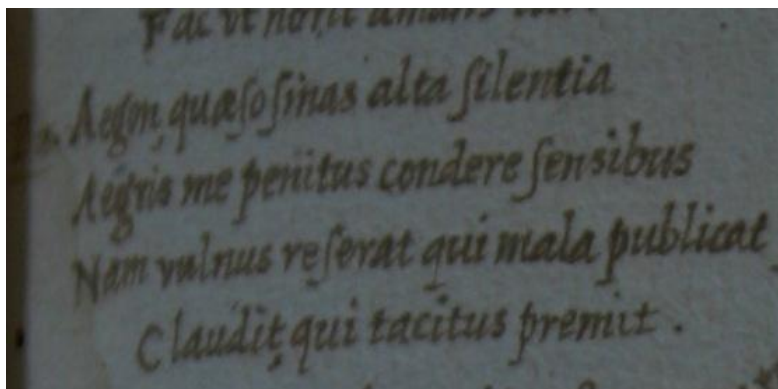 Fac ut norit amans
Aegrū quæso sinas alta silentia
Aegris me penitus condere sensibus
Nam vulnus reserat qui mala publicat
Claudit, qui tacitus premit.